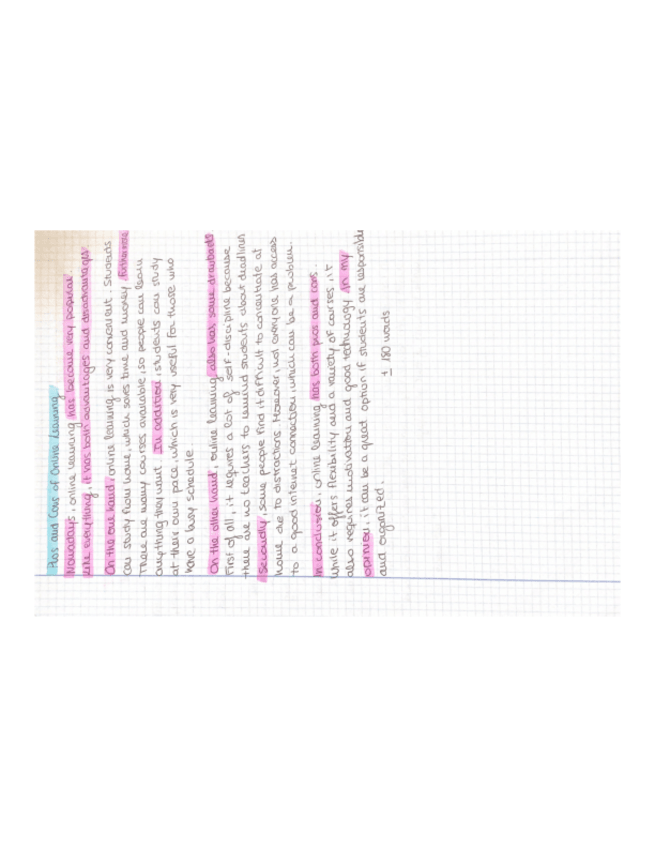 Pros and Cons of Online Learning
Nowadays, online learning has become very popular.
Like everything, it has both advantages and disadvantages
On the one hand, online learning is very convenient. Students
can study from home, which saves time and money. Furthermore
There are many courses available, so people can learn
anything they want. In addition, students can study
at their own pace, which is very useful for those who
have a busy schedule.
On the other hand, online learning also has some drawbacks
First of all, it requires a lot of self-discipline because
there are no teachers to remind students about deadlines
Secondly, some people find it difficult to concentrate at
home due to distractions. Moreover, not everyone has access
to a good internet connection, which can be a problem.
In conclusion, online learning has both pros and cons
While it offers flexibility and a variety of courses, it
also requires motivation and good technology. In my
opinion, it can be a great option if students are responsible
and organized.
± 180 words